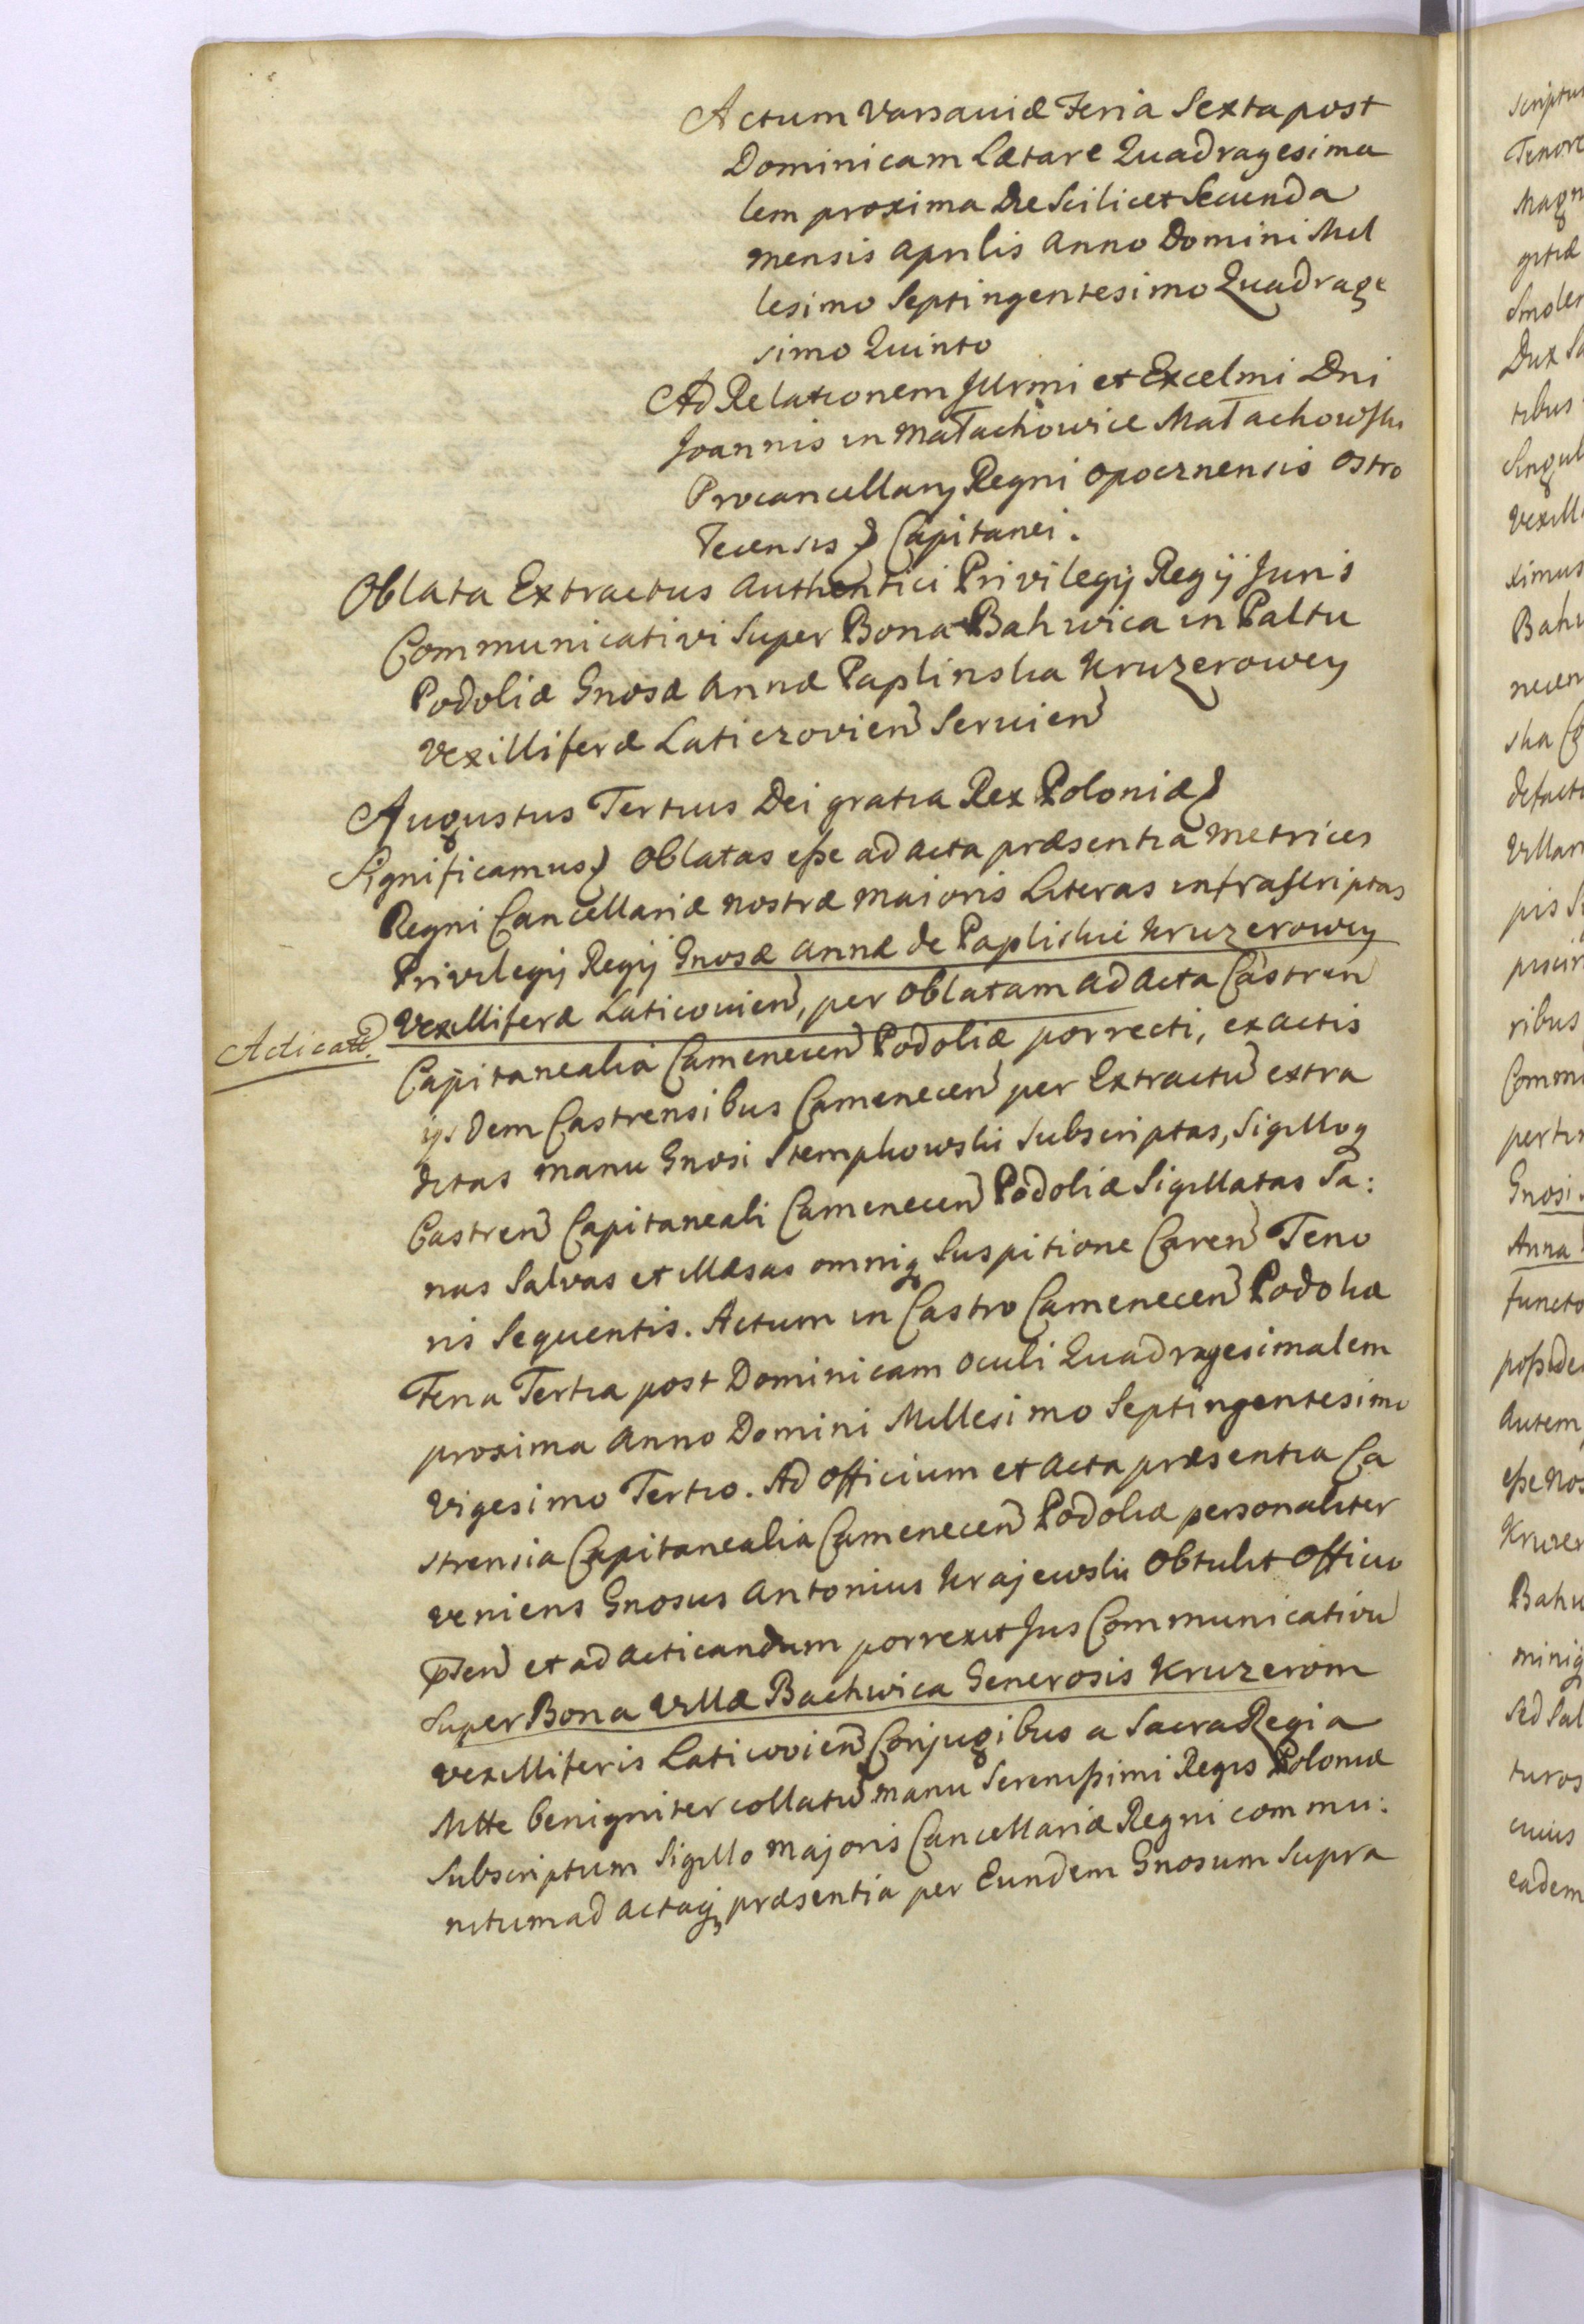 Actum Varsaviæ Feria Sexta post
Dominicam Lætare Quadragesima
lem proxima Die Scilicet Secunda
mensis Aprilis Anno Domini Mil
lesimo Septingentesimo Quadrage
simo Quinto
Ad Relationem Jllrmi et Excelmi Dni
Joannis in Małachowice Małachowski
Procancellarij Regni Opocznensis Ostro
łecensis & Capitanei.
Oblata Extractus Authentici Privilegij Regij Juris
Communicativi Super Bona Bahwica in Paltu
Podoliæ Gnosæ Annæ Paplinska Kruzerowey
Vexilliferæ Laticzovien Servien
Augustus Tertius Dei gratia Rex Poloniæ &
Significamus & Oblatas eße ad acta præsentia Metrices
Regni Cancellariæ nostræ maioris Literas infrascriptas
Privilegij Regij Gnosæ Annæ de Paplishie Kruzerowey
Acticatt. Vexilliferæ Laticovien, per Oblatam ad Acta Castren
Capitanealia Camenecen Podoliæ porrecti, ex actis
ijsdem Castrensibus Camenecen per Extractu extra
ditas manu Gnosi Stemphowski Subscriptas, Sigilloq
Castren Capitaneali Camenecen Podoliæ Sigillatas Sa:
nas Salvas et illæsas omniq Suspitione Caren Teno
ris Sequentis. Actum in Castro Camenecen Podoliæ
Feria Tertia post Dominicam Oculi Quadragesimalem
proxima Anno Domini Millesimo Septingentesimo
Vigesimo Tertio. Ad Officium et Acta præsentia Ca
strensia Capitanealia Camenecen Podoliæ personaliter
veniens Gnosus Antonius Krajewski Obtulit Officio
pten et ad Acticandum porrexit Jus Communicativu
Super Bona Villæ Bachwica Generosis Kruzerom
Vexilliferis Laticovien Conjugibus a Sacra Regia
Mtte benigniter collatu manu Serenißimi Regis Poloniæ
Subscriptum Sigillo Majoris Cancellariæ Regni commu:
nitum ad actaq præsentia per Eundem Gnosum Supra